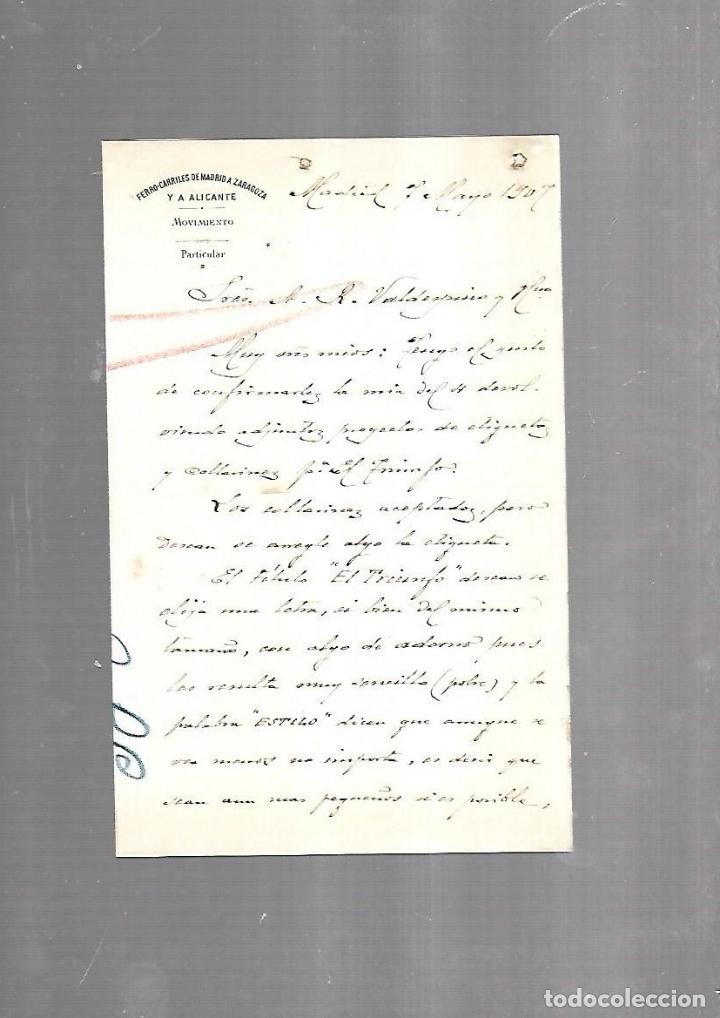 FERRO-CARRILES DE MADRID A ZARAGOZA
Y A ALICANTE
MOVIMIENTO
Particular
Madrid 7 Mayo 1907
Sres. A. R. Valdespino y Hno
Muy Sres mios: Tengo el gusto
de confirmarles la mia del 4 devol-
viendo adjuntos proyectos de etiquetas
y collarines pa El Triunfo.
Los collarines aceptados, pero
desean se arregle algo la etiqueta.
El título "El Triunfo" desean se
elija una letra, si bien del mismo
tamaño, con algo de adorno pues
les resulta muy sencillo (pobre) y la
palabra "ESTILO" dicen que aunque se
vea menos no importa, es decir que
sean aun mas pequeños si es posible,
todocoleccion
todocoleccion.net